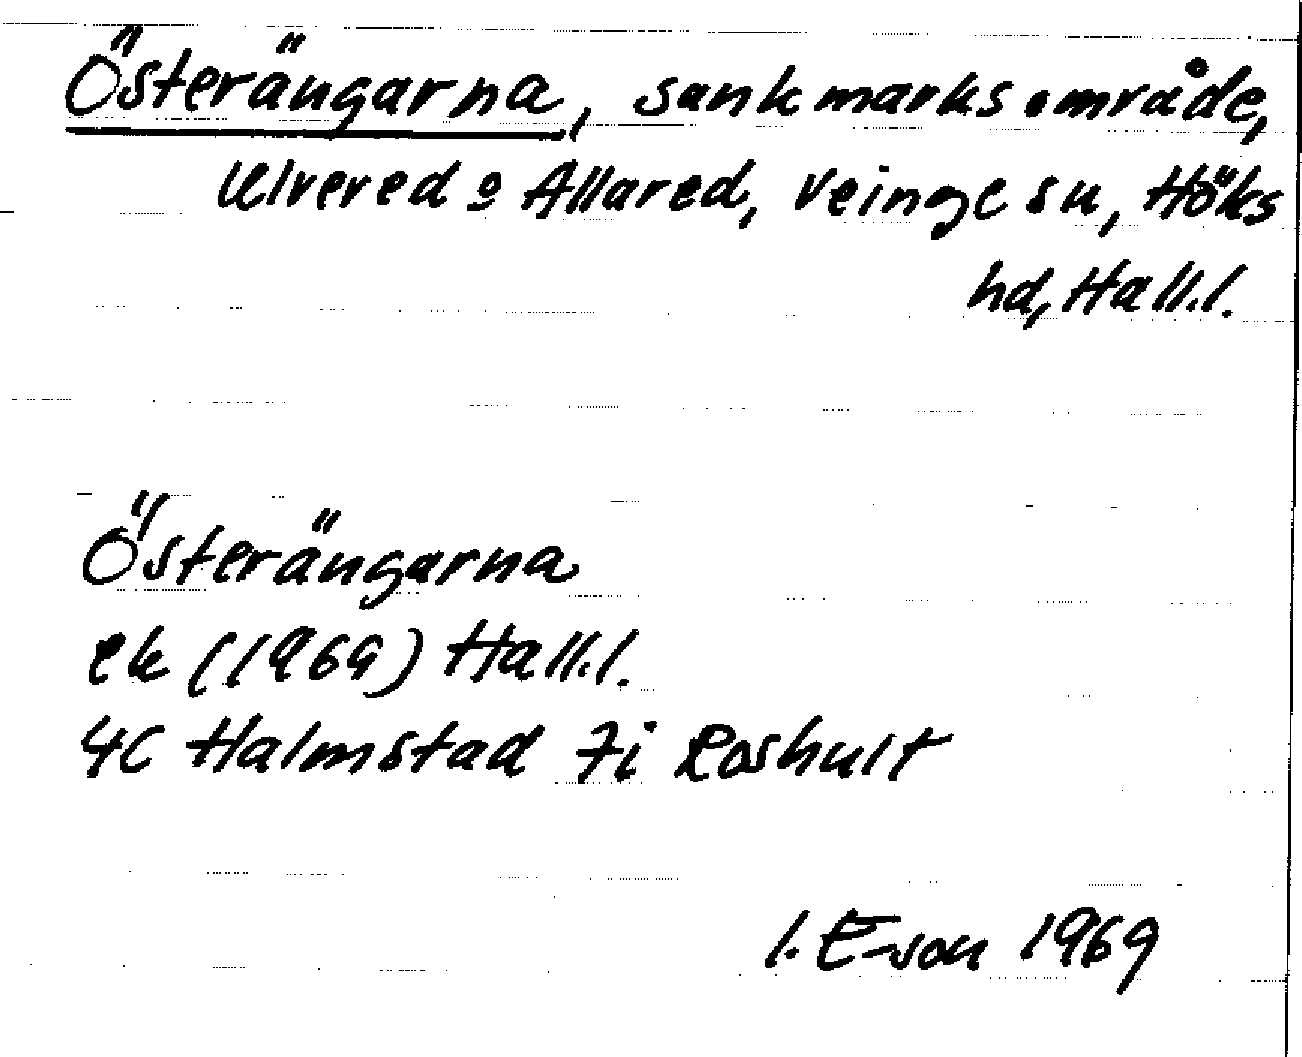 Österängarna, sankmarksområde,
Ulvered o Allared, Veinge sn, Höks
hd, Hall.l.
Österängarna
ek (1969) Hall.l.
4C Halmstad 7i Roshult
I. E-son 1969